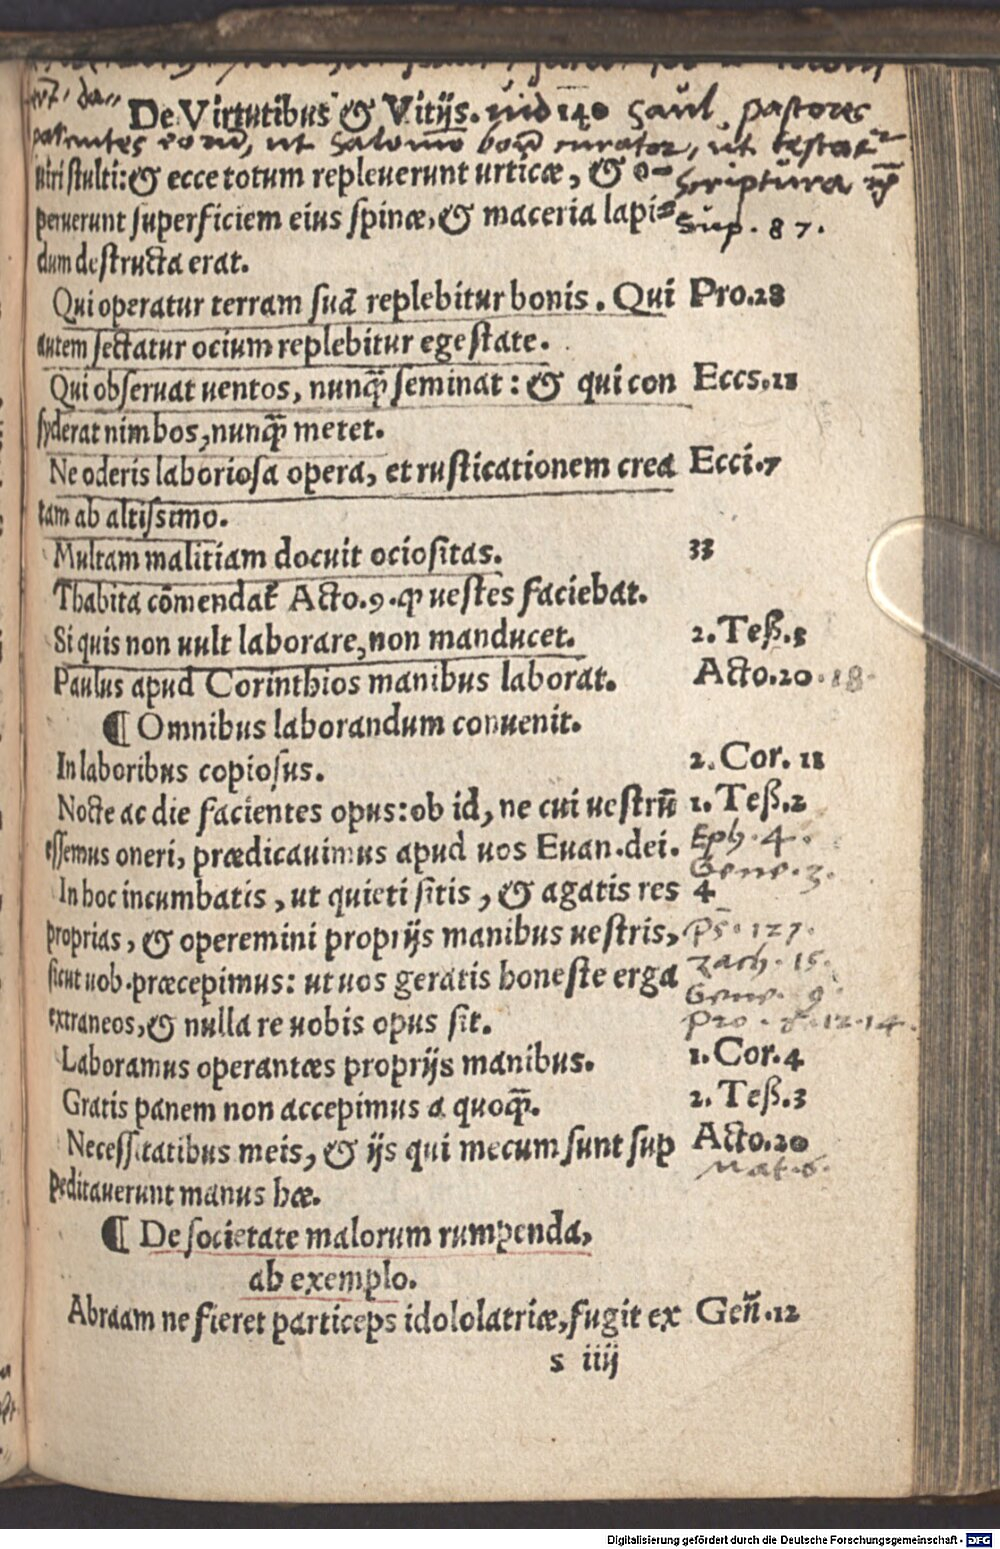 De Virtutibus & Vitijs. uid 140 Saul pastores
parentes eorum, ut Salomo curator, ut testat
uiri stulti: & ecce totum repleuerunt urticæ, & o- Scriptura
peruerunt superficiem eius spinæ, & maceria lapi= Sup. 87.
dum destructa erat.
Qui operatur terram suā replebitur bonis. Qui Pro.28
autem sectatur ocium replebitur egestate.
Qui obseruat uentos, nunq̄ seminat: & qui con Eccs.11
syderat nimbos, nunq̄ metet.
Ne oderis laboriosa opera, et rusticationem crea Ecci.7
tam ab altissimo.
Multam malitiam docuit ociositas. 33
Thabita cōmendat̄ Acto.9.ꝙ uestes faciebat.
Si quis non uult laborare, non manducet. 2.Teß.3
Paulus apud Corinthios manibus laborat. Acto.20.18.
¶ Omnibus laborandum conuenit.
In laboribus copiosus. 2.Cor. 11
Nocte ac die facientes opus: ob id, ne cui uestrū 1.Teß.2
essemus oneri, prædicauimus apud uos Euan.dei. Eph. 4.
Gene. 3.
In hoc incumbatis, ut quieti sitis, & agatis res 4
proprias, & operemini proprijs manibus uestris, Ps. 127.
Zach. 15.
sicut uob. præcepimus: ut uos geratis honeste erga
Gene. 9.
extraneos, & nulla re uobis opus sit. Pro. 8.12.14.
Laboramus operantæs proprijs manibus. 1.Cor.4
Gratis panem non accepimus a quoq̄. 2.Teß.3
Necessitatibus meis, & ijs qui mecum sunt sup Acto.20
Mat.6.
peditauerunt manus hæ.
¶ De societate malorum rumpenda,
ab exemplo.
Abraam ne fieret particeps idololatriæ, fugit ex Geñ.12
s iiij
Digitalisierung gefördert durch die Deutsche Forschungsgemeinschaft - DFG